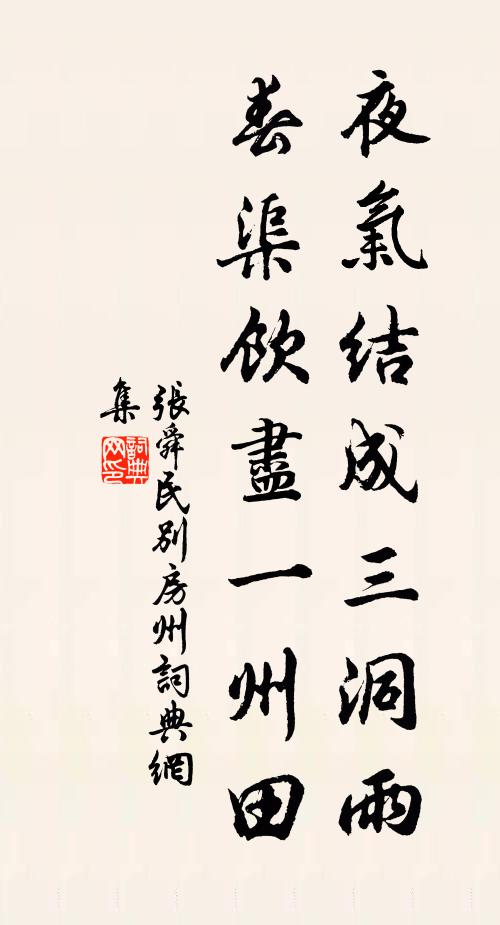 夜氣結成三洞雨
春渠飲盡一州田
張舜民別房州詞典網
集
詞典
网印